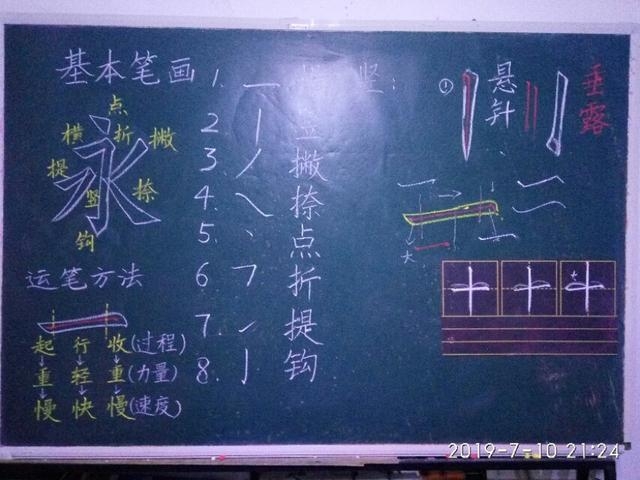 基本笔画
点
横 折 撇
提 永 捺
竖
钩
运笔方法
起 行 收(过程)
重 轻 重(力量)
慢 快 慢(速度)
1. 一
2. 丨
3. 丿 撇
4. ㇏ 捺
5. 丶 点
6. ㇕ 折
7. ㇀ 提
8. 亅 钩
竖:
① 悬针
垂露
大
十 十 十
2019-7-10 21:24